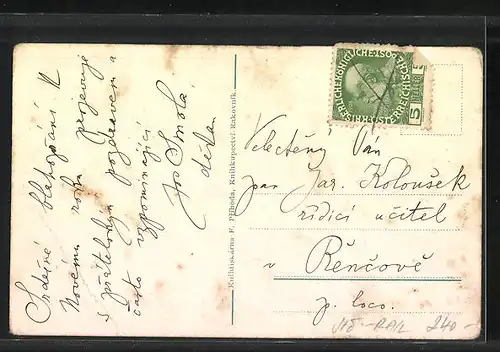 Srdečné blahopřání k
Novému roku projevuje
s přátelským pozdravem a
často vzpomínající
Jos Smola
děkan
Knihtiskárna F. Příhoda, Knihkupectví Rakovník.
KAISERLICHE KÖNIGLICHE ÖSTERREICHISCHE POST
5 HELLER 5
Velectěný Pán
pan Jar. Koloušek
řídící učitel
v Řenčově
p. loco.
240-